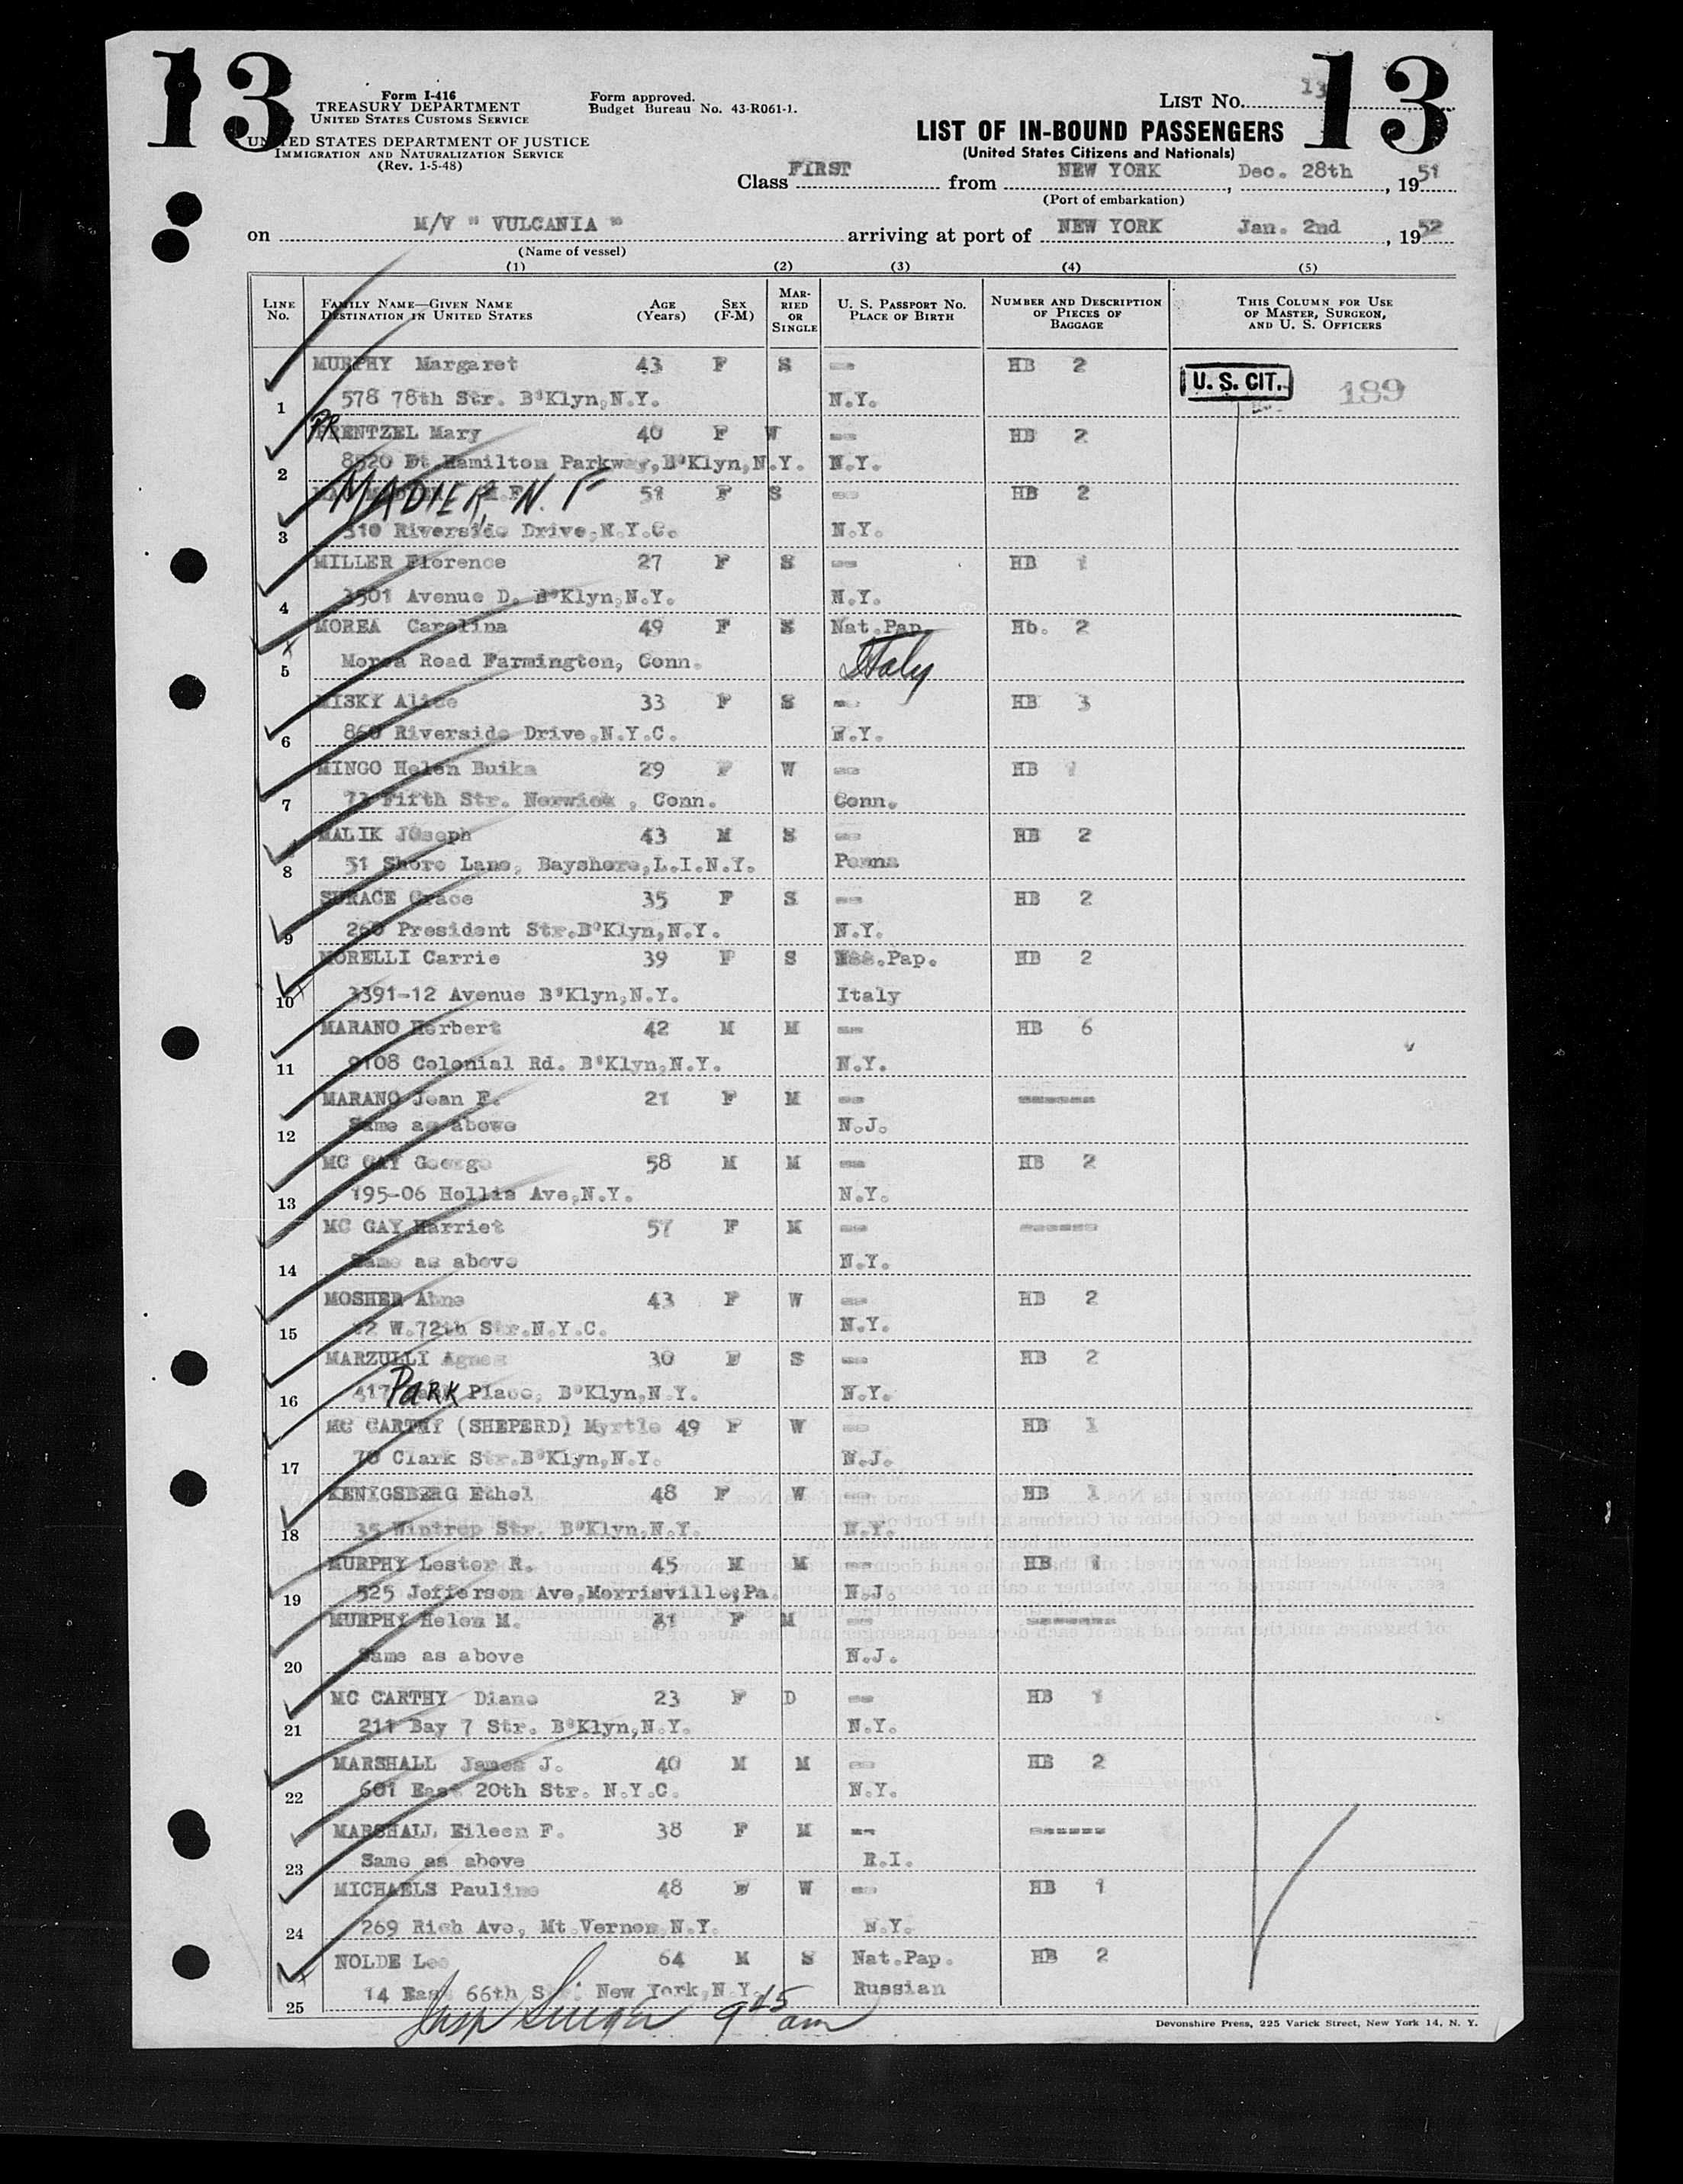 13
13
Form I-416
TREASURY DEPARTMENT
UNITED STATES CUSTOMS SERVICE
UNITED STATES DEPARTMENT OF JUSTICE
IMMIGRATION AND NATURALIZATION SERVICE
(Rev. 1-5-48)
Form approved.
Budget Bureau No. 43-R061-1.
LIST No. 13
LIST OF IN-BOUND PASSENGERS
(United States Citizens and Nationals)
Class FIRST from NEW YORK, Dec. 28th, 1951
(Port of embarkation)
on M/V " VULCANIA " arriving at port of NEW YORK Jan. 2nd, 1952
(Name of vessel)
(1) (2) (3) (4) (5)
LINE No. FAMILY NAME—GIVEN NAME DESTINATION IN UNITED STATES AGE (Years) SEX (F-M) MARRIED OR SINGLE U. S. PASSPORT NO. PLACE OF BIRTH NUMBER AND DESCRIPTION OF PIECES OF BAGGAGE THIS COLUMN FOR USE OF MASTER, SURGEON, AND U. S. OFFICERS
MURPHY Margaret 43 F S -- HB 2 U. S. CIT. 189
1 578 78th Str. B'Klyn,N.Y. N.Y.
PRENTZEL Mary 40 F W -- HB 2
2 8520 Ft.Hamilton Parkway,B'Klyn,N.Y. N.Y.
MADIER, N. F 51 F S -- HB 2
3 310 Riverside Drive,N.Y.C. N.Y.
MILLER Florence 27 F S -- HB 1
4 3501 Avenue D. B'Klyn,N.Y. N.Y.
MOREA Carolina 49 F S Nat.Pap. Hb. 2
5 Morea Road Farmington, Conn. Italy
MISKY Alice 33 F S -- HB 3
6 860 Riverside Drive,N.Y.C. N.Y.
MINGO Helen Buika 29 F W -- HB 1
7 73 Fifth Str. Norwick , Conn. Conn.
MALIK JOseph 43 M S -- HB 2
8 51 Shore Lane, Bayshore,L.I.N.Y. Penna
SURACE Grace 35 F S -- HB 2
9 260 President Str.B'Klyn,N.Y. N.Y.
MORELLI Carrie 39 F S .Pap. HB 2
10 3391-12 Avenue B'Klyn,N.Y. Italy
MARANO Herbert 42 M M -- HB 6
11 9108 Colonial Rd. B'Klyn,N.Y. N.Y.
MARANO Jean F. 21 F M -- ------
12 Same as above N.J.
MC GAY George 58 M M -- HB 2
13 195-06 Hollis Ave,N.Y. N.Y.
MC GAY Harriet 57 F M -- ------
14 Same as above N.Y.
MOSHER Abne 43 F W -- HB 2
15 12 W.72th Str.N.Y.C. N.Y.
MARZULLI Agnes 30 F S -- HB 2
16 417 PARK Place, B'Klyn,N.Y. N.Y.
MC CARTHY (SHEPERD) Myrtle 49 F W -- HB 1
17 70 Clark Str.B'Klyn,N.Y. N.J.
KENIGSBERG Ethel 48 F W -- HB 1
18 35 Wintrop Str. B'Klyn,N.Y. N.Y.
MURPHY Lester R. 45 M M -- HB 1
19 525 Jefferson Ave,Morrisville,Pa. N.J.
MURPHY Helen M. 31 F M -- -------
20 Same as above N.J.
MC CARTHY Diane 23 F D -- HB 1
21 211 Bay 7 Str. B'Klyn,N.Y. N.Y.
MARSHALL James J. 40 M M -- HB 2
22 601 East 20th Str. N.Y.C. N.Y.
MARSHALL Eileen F. 38 F M -- ------
23 Same as above R.I.
MICHAELS Pauline 48 F W -- HB 1
24 269 Rich Ave, Mt.Vernon,N.Y. N.Y.
NOLDE Leo 64 M S Nat.Pap. HB 2
25 14 East 66th S New York,N.Y. Russian
Insp 9 45 am
Devonshire Press, 225 Varick Street, New York 14, N. Y.